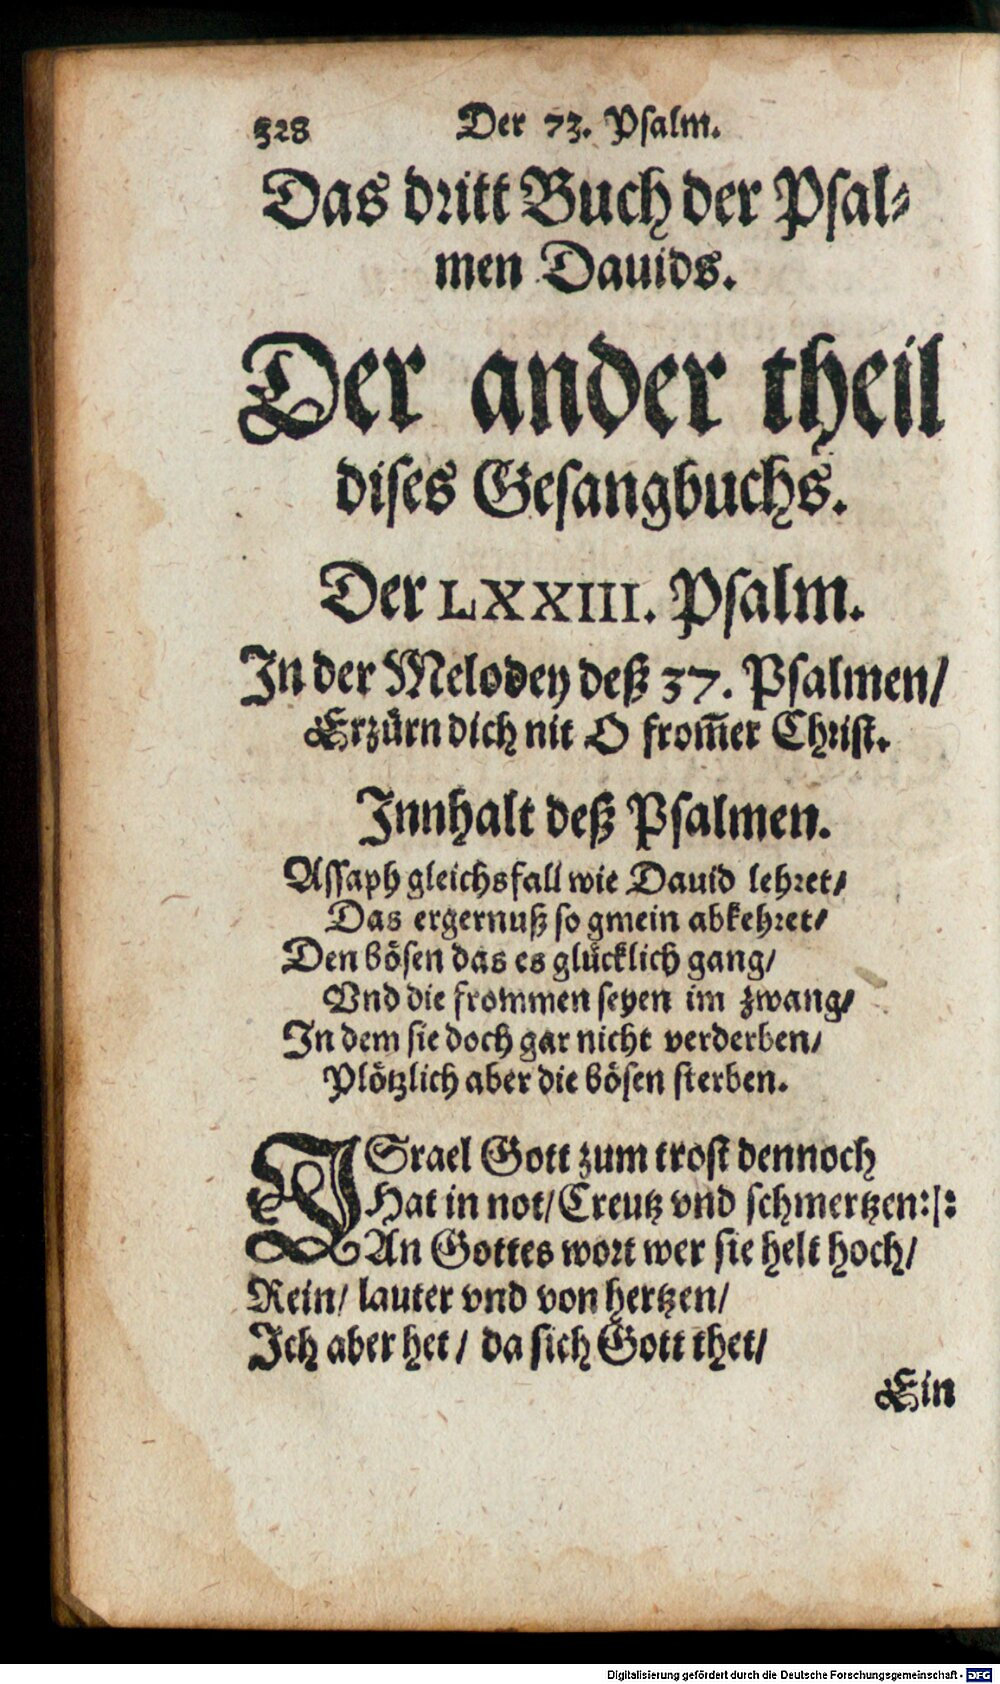 328 Der 73. Psalm.
Das dritt Buch der Psal-
men Dauids.
Der ander theil
dises Gesangbuchs.
Der LXXIII. Psalm.
In der Melodey deß 37. Psalmen/
Erzürn dich nit O from̃er Christ.
Innhalt deß Psalmen.
Assaph gleichsfall wie Dauid lehret/
Das ergernuß so gmein abkehret/
Den bösen das es glücklich gang/
Vnd die frommen seyen im zwang/
In dem sie doch gar nicht verderben/
Plötzlich aber die bösen sterben.
ISrael Gott zum trost dennoch
Hat in not/ Creutz vnd schmertzen:|:
An Gottes wort wer sie helt hoch/
Rein/ lauter vnd von hertzen/
Ich aber het/ da sich Gott thet/
Ein
Digitalisierung gefördert durch die Deutsche Forschungsgemeinschaft - DFG